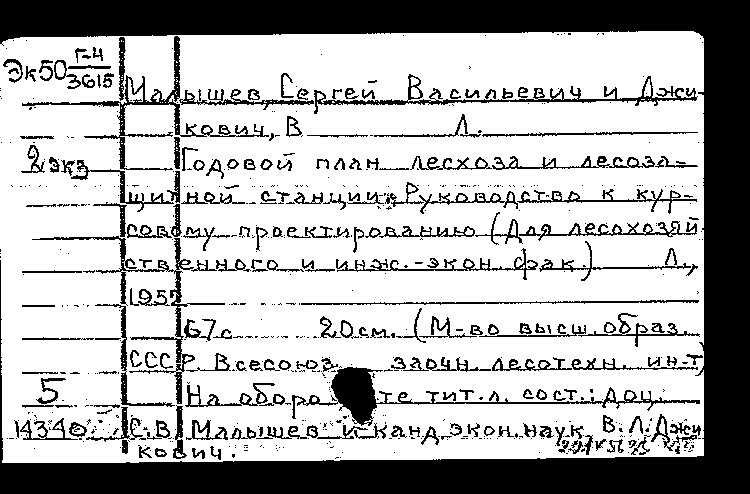 Эк50 Г-4
3615
Малышев, Сергей Васильевич и Джи-
кович, В Л.
2 экз
Годовой план лесхоза и лесоза-
щитной станции. Руководство к кур-
совому проектированию (Для лесохозяй
ственного и инж.-экон. фак.) Л.,
1955
67с 20см. (М-во высш. образ.
СССР. Всесоюз. заочн. лесотехн. ин-т)
5
На оборо те тит. л. сост.: доц.
14340 С.В. Малышев и канд. экон. наук В.Л. Джи
кович.